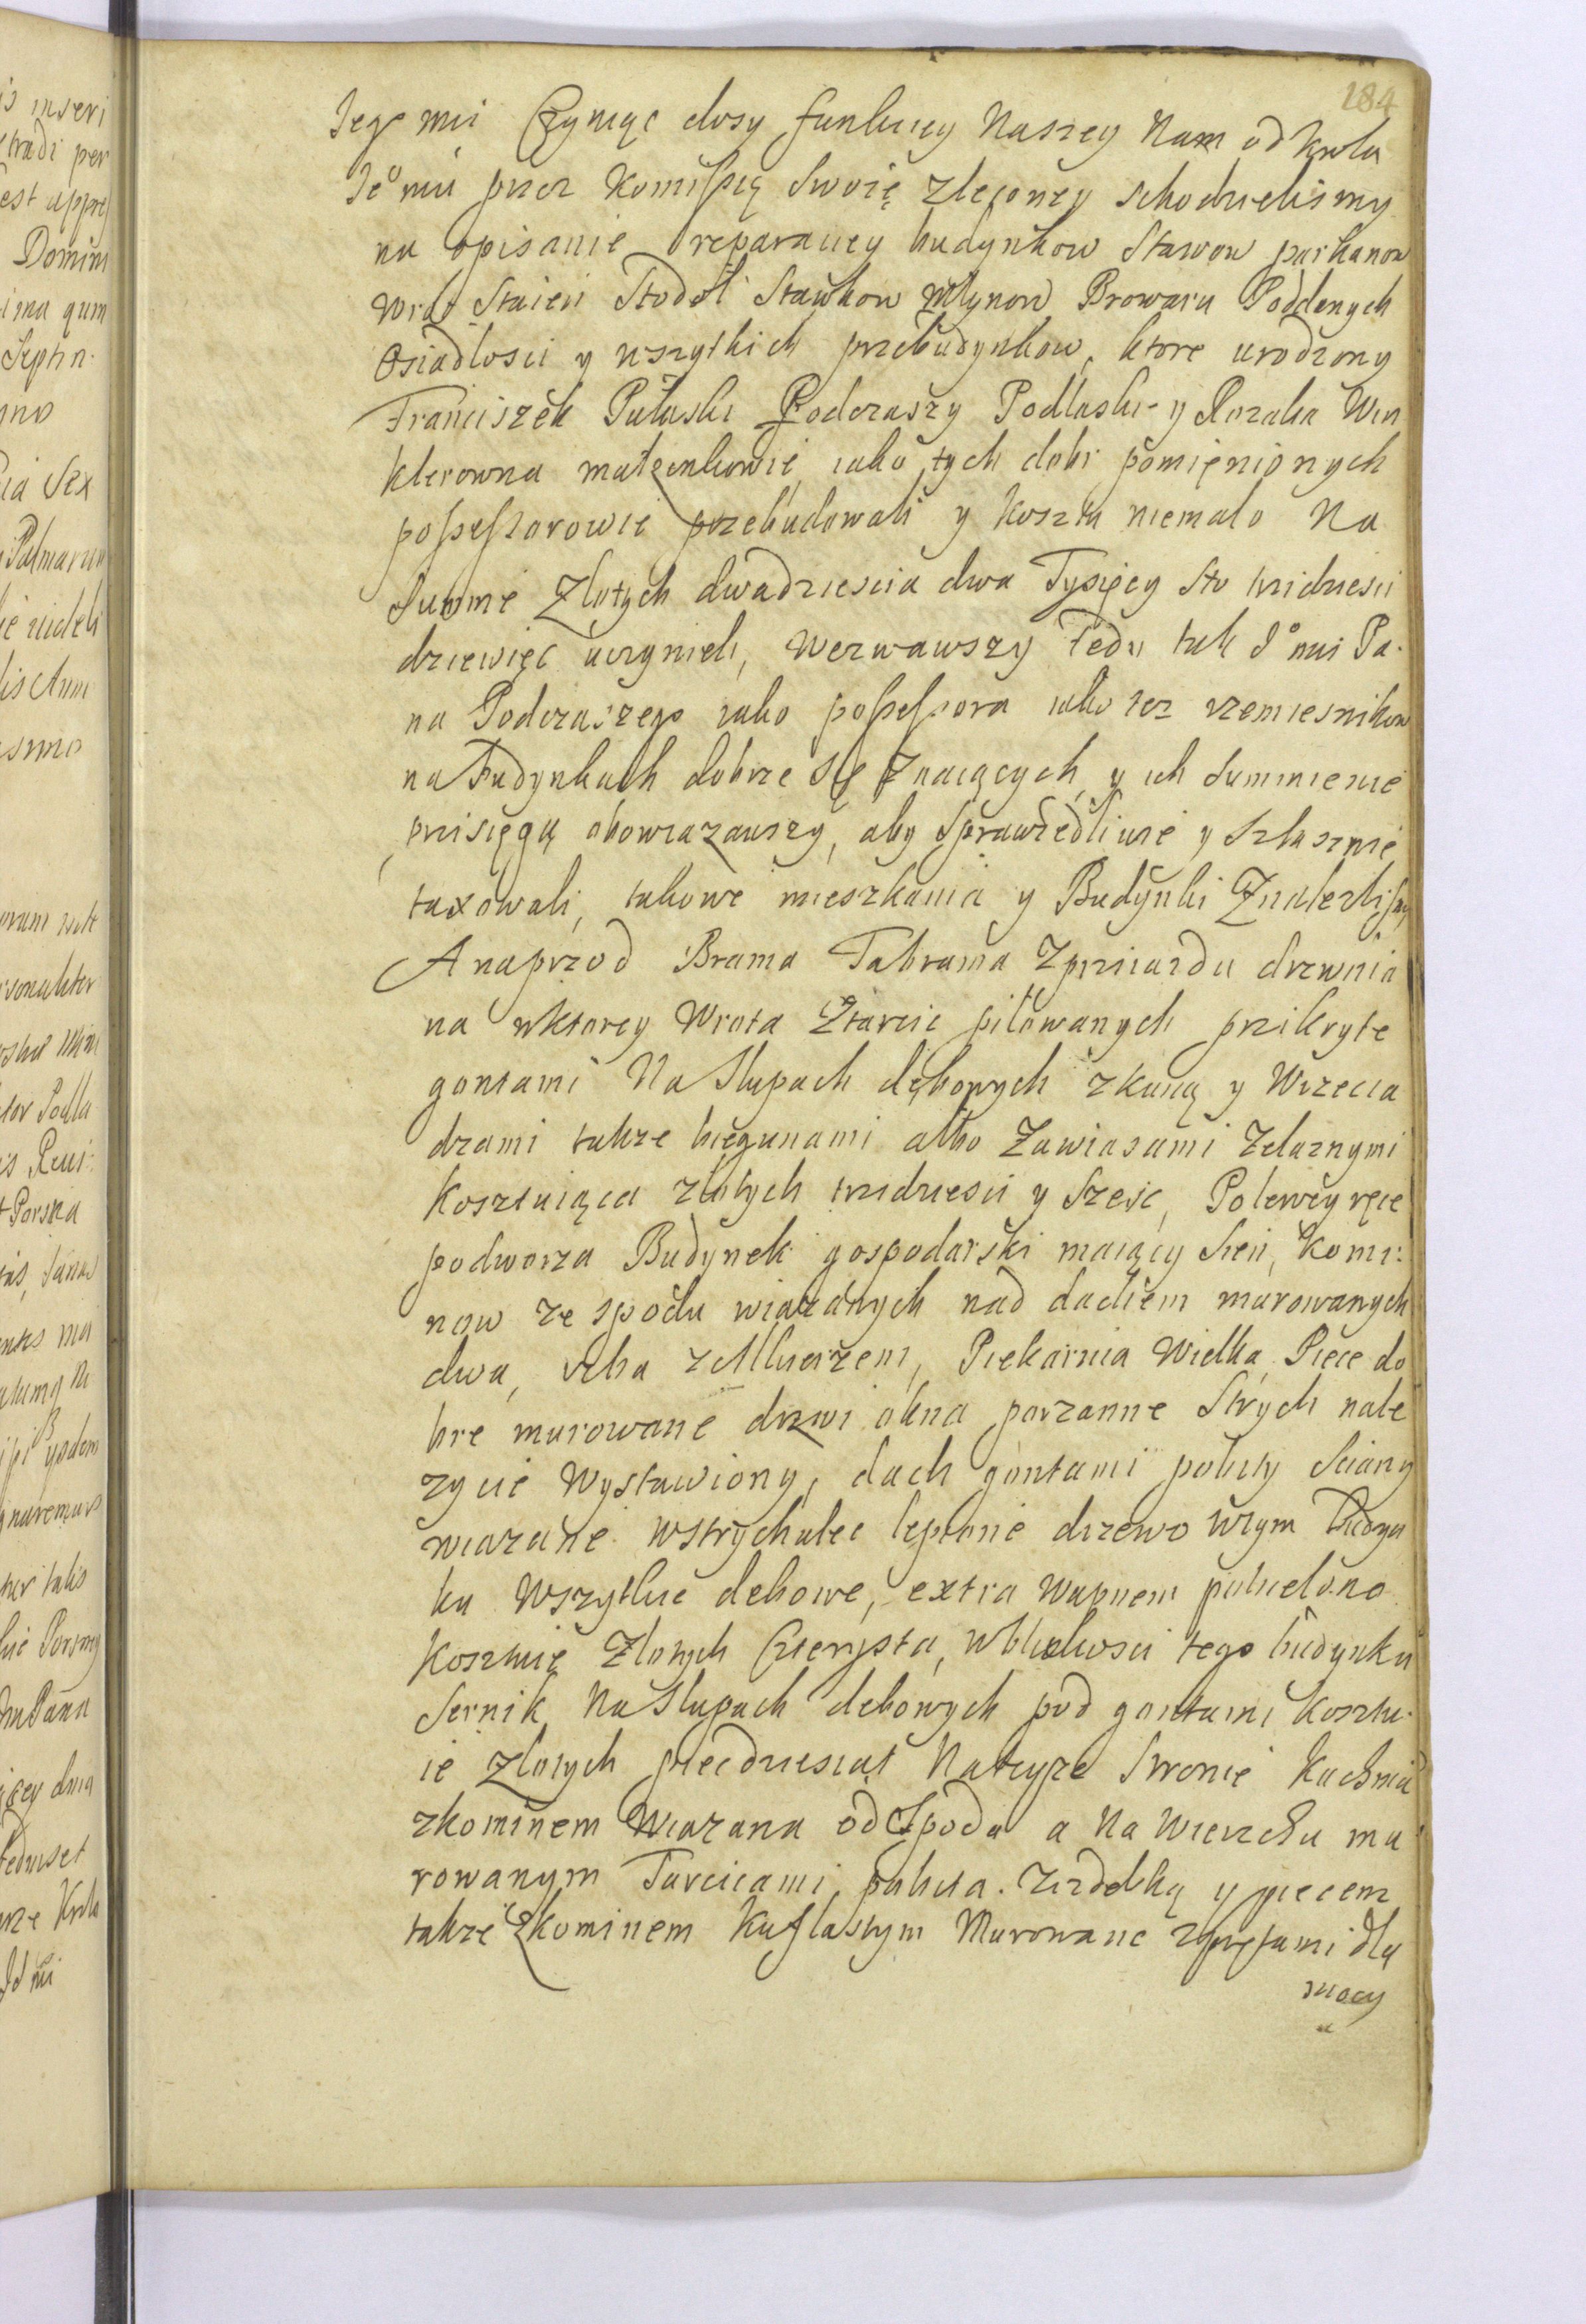 184
Jego mci Czyniąc dosy funkcyey Naszey Nam od Krola
Je⁰ mci przez Komiſſią Swoię zleconey schodzielismy
na opisanie reparacyey budynkow Stawow parkanow
Wrot Staien Stodoł Stawkow Młynow Browaru Poddanych
Osiadłosci y wszytkich przebudynkow, ktore urodzony
Franciszek Pułaski Podczaszy Podlaski y Rozalia Win
klerowna małzenkowie, iako tych dobr pomięnionych
poſſeſsorowie przebudowali y koszta niemało Na
Summe Złotych dwadziescia dwa Tysięcy Sto trzidziesci
dziewięc uczynieli, Wezwawszy tedy tak J⁰ mci Pa
na Podczaszego iako poſſeſsora iako tez rzemiesnikow
na Budynkach dobrze Się Znaiących, y ich Summienie
przisięgą obowiazawszy, aby Sprawiedliwie y Szłusznie
taxowali, takowe mieszkania y Budynki Znalezlismy
A naprzod Brama Zprziiazdu drzewnia
na wktorey Wrota Ztarcic piłowanych przikryte
gontami Na Słupach dębowych zkuną y Wrzecią
dzami takze biegunami albo Zawiasami Zelaznymi
Kosztuiąca złotych trzidziesci y Szesc, Polewey ręce
podworza Budynek gospodarski maiący Sien, Komi:
now ze spodu wiazanych nad dachem murowanych
dwa, izba z Alkierzem, Piekarnia Wielka Piece do
bre murowane drzwi okna porzanne Strych nale
zycie Wystawiony, dach gontami pobity Sciany
wiazane wstrychulec lepione drzewo wtym Budyn
ku Wszytkie debowe, extra Wapnem pobielono
Kosztuię Złotych Czterysta, wbliskosci tego budynku
Sernik Na Słupach debowych pod gontami kosztu
ie Złotych piecdziesiąt Nateyze Stronie Kuchnia
zkominem Wiazana od Spodu a Na Wierzchu mu
rowanym Tarcicami pobita. Zizdebką y piecem
takze zkominem Kaflastym Murowane zprętami dla
mocy